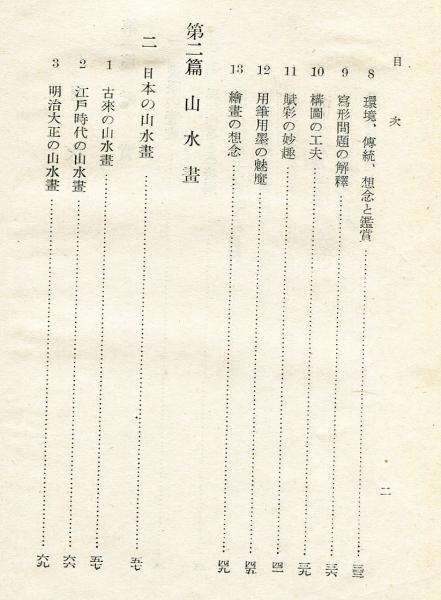 目次
8 環境、傳統、想念と鑑賞……三三
9 寫形問題の解釋……三六
10 構圖の工夫……三九
11 賦彩の妙趣……四一
12 用筆用墨の魅魔……四五
13 繪畫の想念……四九
第二篇 山水畫
二 日本の山水畫……五七
1 古來の山水畫……五七
2 江戸時代の山水畫……六六
3 明治大正の山水畫……六九
二